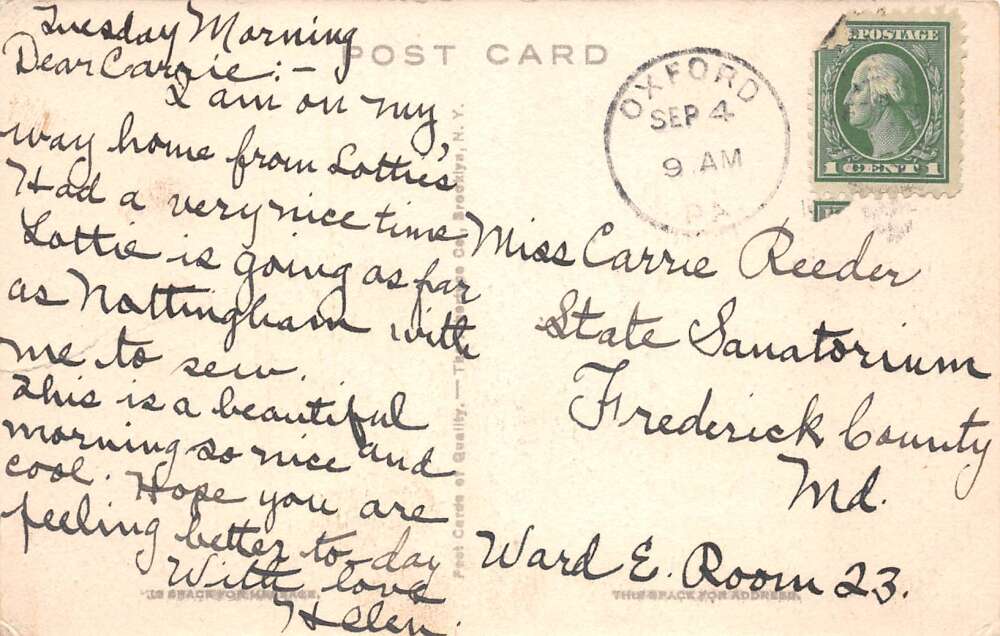 Tuesday Morning
Dear Carrie:-
I am on my
way home from Lottie's
Had a very nice time
Lottie is going as far
as Nottingham with
me to sew.
This is a beautiful
morning so nice and
cool. Hope you are
feeling better to-day
With love
Helen.
POST CARD
OXFORD
SEP 4
9 AM
PA
POSTAGE
1 CENT 1
Miss Carrie Reeder
State Sanatorium
Frederick County
Md.
Ward E. Room 23.
Post Cards of Quality. — The Co., Brooklyn, N.Y.
IS SPACE FOR MESSAGE.
THIS SPACE FOR ADDRESS.